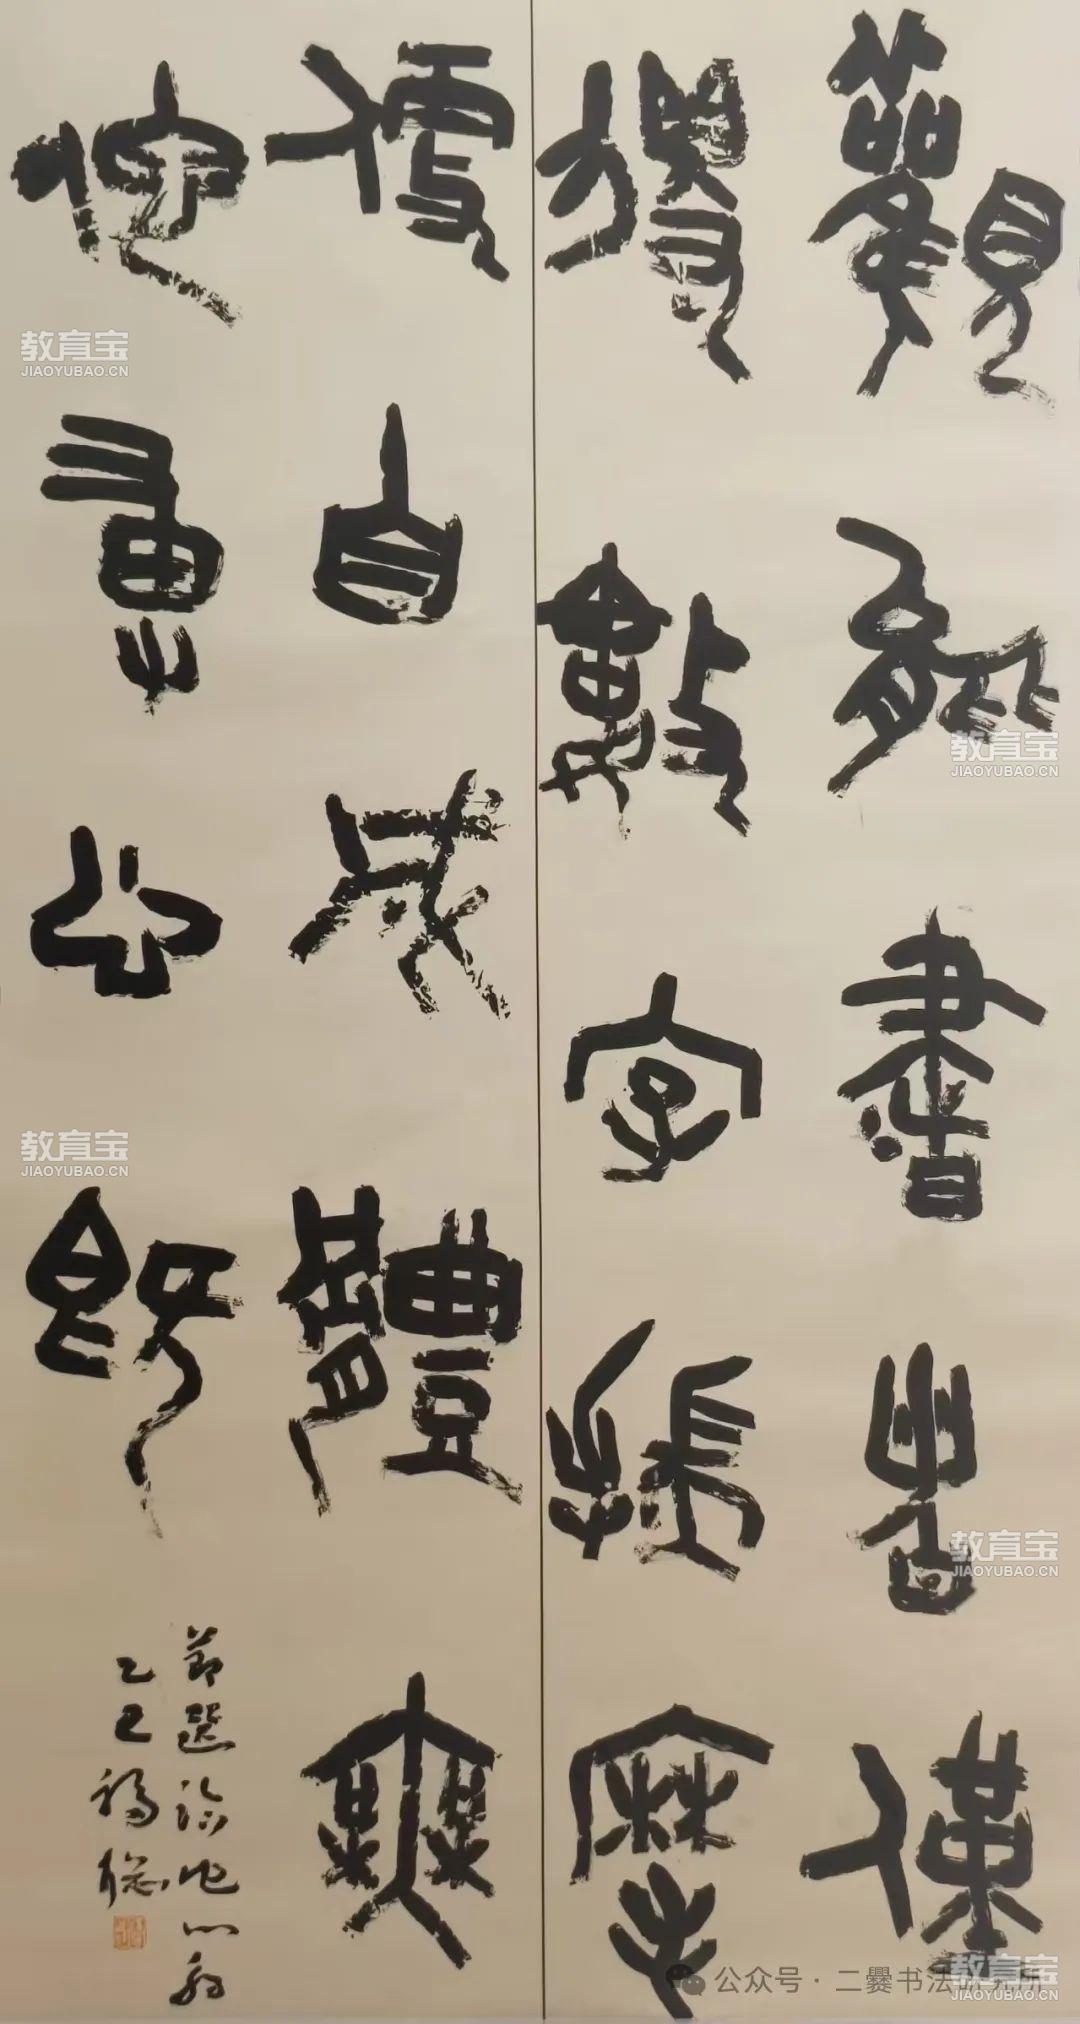 觀能書者僅
得數字揣摩
便自成體無
他專心既
節選臨池心解
乙巳福聰
教育宝
JIAOYUBAO.CN
教育宝
JIAOYUBAO.CN
教育宝
JIAOYUBAO.CN
教育宝
JIAOYUBAO.CN
教育宝
JIAOYUBAO.CN
公众号·二爨书法研究所